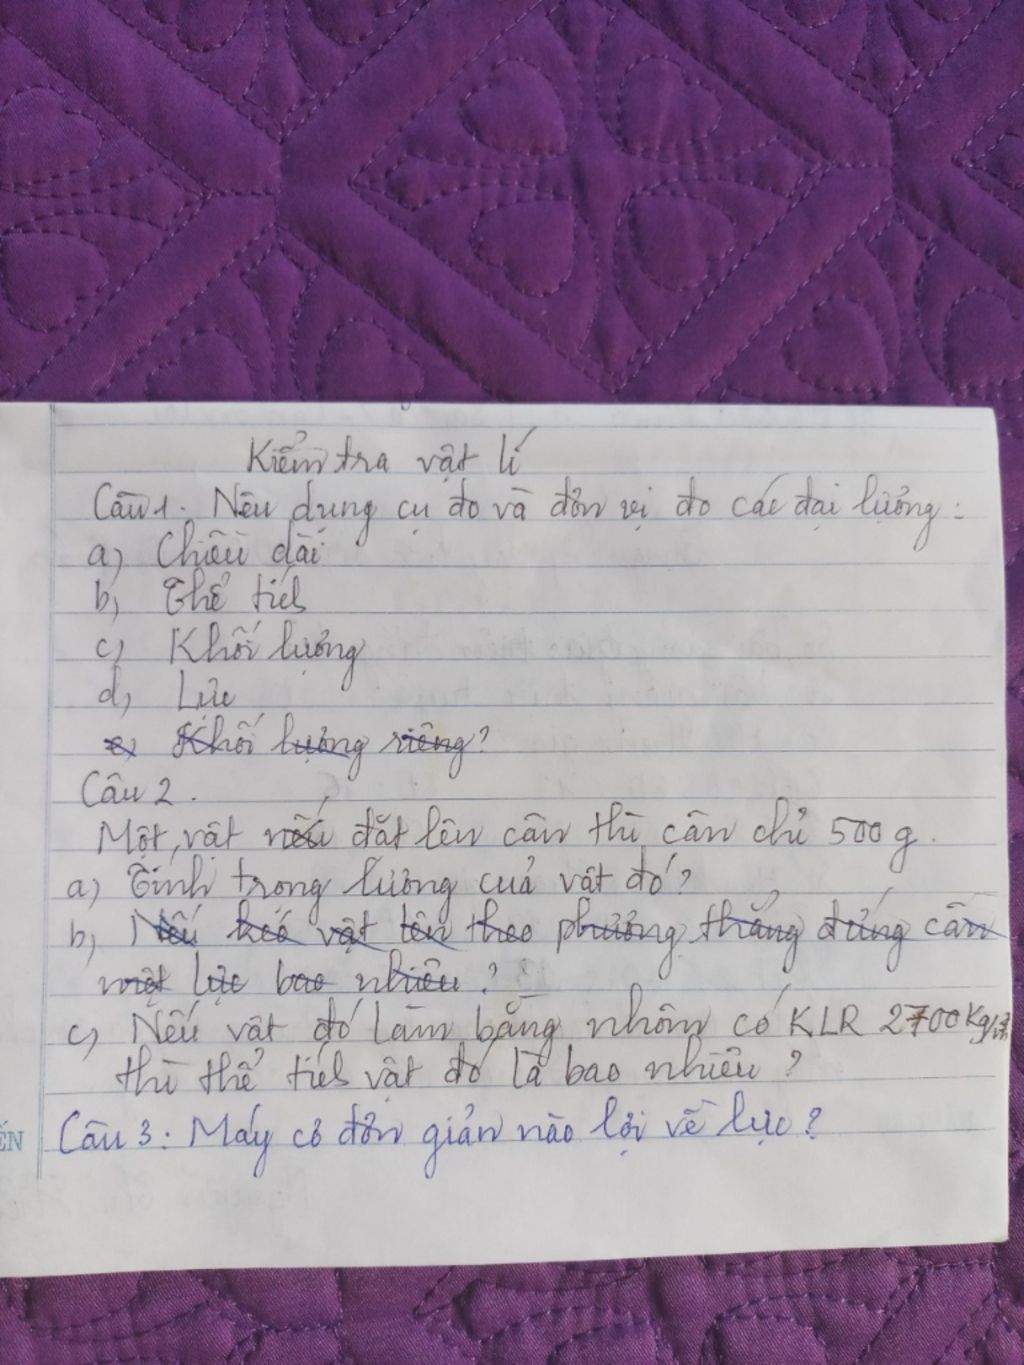 Kiểm tra vật lí
Câu 1. Nêu dụng cụ đo và đơn vị đo các đại lượng:
a) Chiều dài
b) Thể tích
c) Khối lượng
d) Lực
e) Khối lượng riêng?
Câu 2.
Một vật nếu đặt lên cân thì cân chỉ 500 g.
a) Tính trọng lượng của vật đó?
b) Nếu kéo vật lên theo phương thẳng đứng cần
một lực bao nhiêu?
c) Nếu vật đó làm bằng nhôm có KLR 2700 Kg/m³
thì thể tích vật đó là bao nhiêu?
ẾN
Câu 3: Máy cơ đơn giản nào lợi về lực?